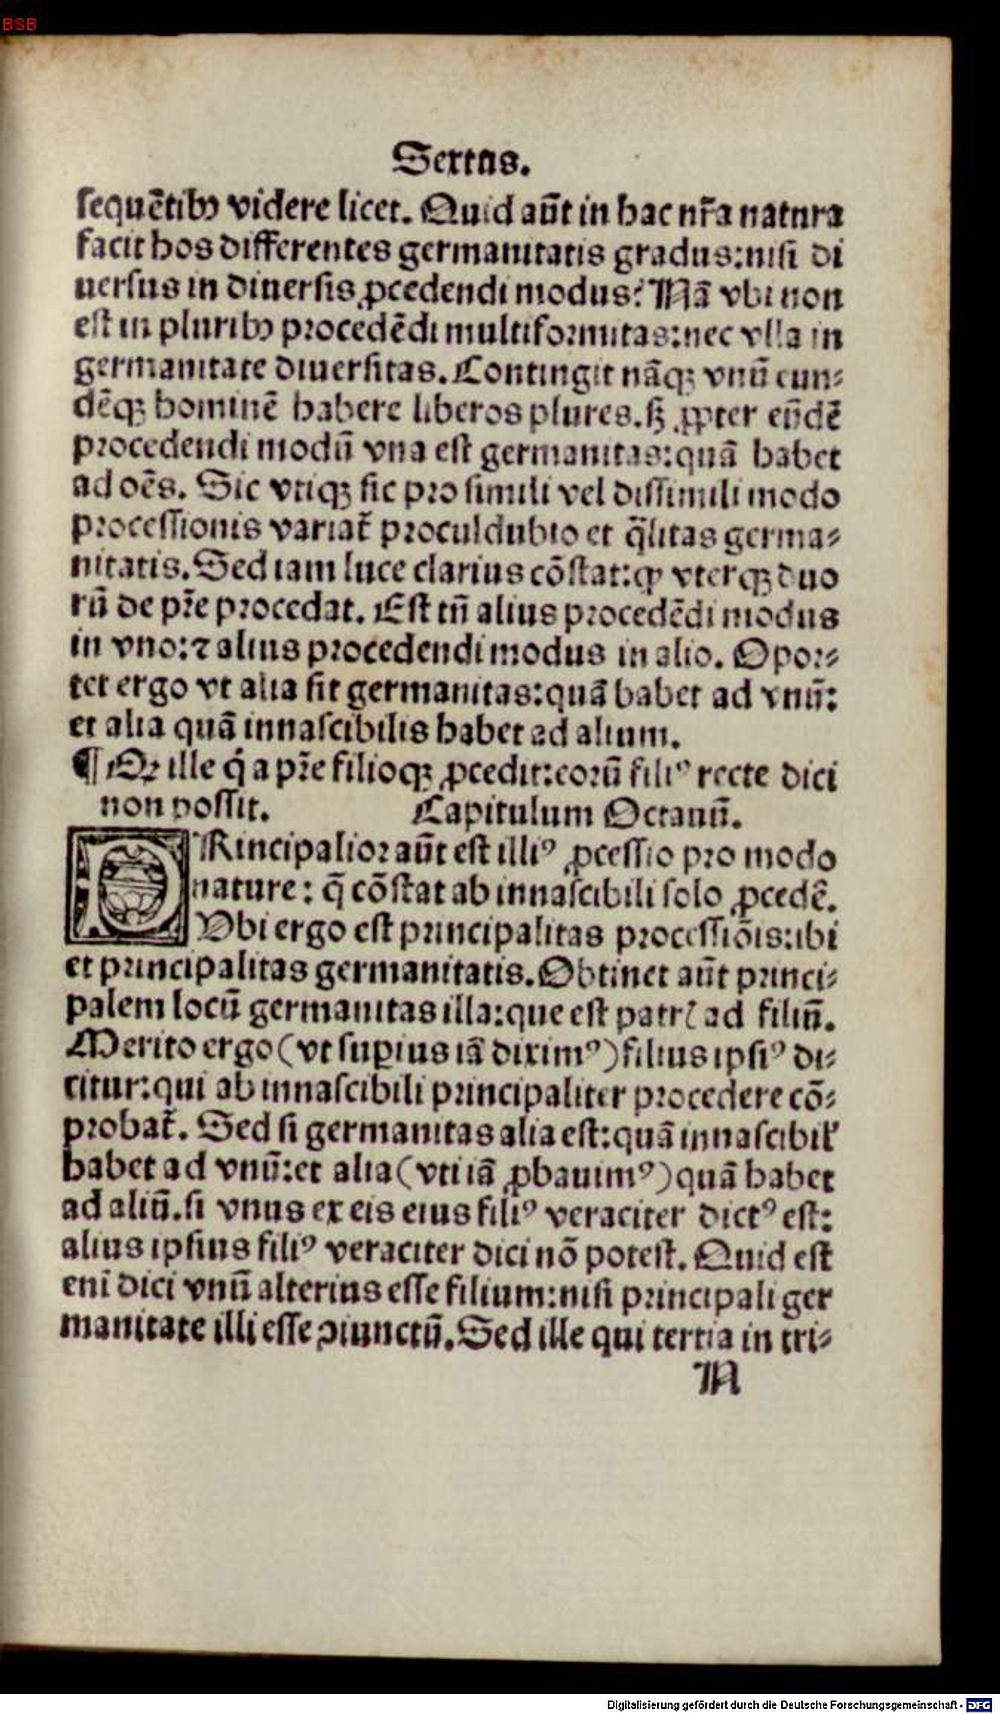 BSB
Sextus.
sequētibꝰ videre licet. Quid aūt in hac nr̄a natura
facit hos differentes germanitatis gradus:nisi di
uersus in diuersis ꝓcedendi modus? Nā vbi non
est in pluribꝰ procedēdi multiformitas:nec vlla in
germanitate diuersitas. Contingit nāqꝫ vnū eun⸗
dēqꝫ hominē habere liberos plures. sꝫ ꝓpter eūdē
procedendi modū vna est germanitas:quā habet
ad oēs. Sic vtiqꝫ sic pro simili vel dissimili modo
processionis variat̄ proculdubio et q̄litas germa⸗
nitatis. Sed iam luce clarius cōstat:ꝙ vterqꝫ duo
rū de pr̄e procedat. Est tn̄ alius procedēdi modus
in vno:⁊ alius procedendi modus in alio. Opor⸗
tet ergo vt alia sit germanitas:quā habet ad vnū:
et alia quā innascibilis habet ad alium.
¶ Qꝫ ille q̇ a pr̄e filioqꝫ ꝓcedit:eorū filiꝰ recte dici
non possit. Capitulum Octauū.
PRincipalior aūt est illiꝰ ꝓcessio pro modo
nature: q̄ cōstat ab innascibili solo ꝓcedē.
Vbi ergo est principalitas processiōis:ibi
et principalitas germanitatis. Obtinet aūt princi⸗
palem locū germanitas illa:que est patrꝭ ad filiū.
Merito ergo (vt supius iā diximꝰ) filius ipsiꝰ di⸗
citur:qui ab innascibili principaliter procedere cō⸗
probat̄. Sed si germanitas alia est:quā innascibil̓
habet ad vnū:et alia (vti iā ꝓbauimꝰ) quā habet
ad aliū. si vnus ex eis eius filiꝰ veraciter dictꝰ est:
alius ipsius filiꝰ veraciter dici nō potest. Quid est
eni dici vnū alterius esse filium:nisi principali ger
manitate illi esse ꝯiunctū. Sed ille qui tertia in tri⸗
N
Digitalisierung gefördert durch die Deutsche Forschungsgemeinschaft - DFG